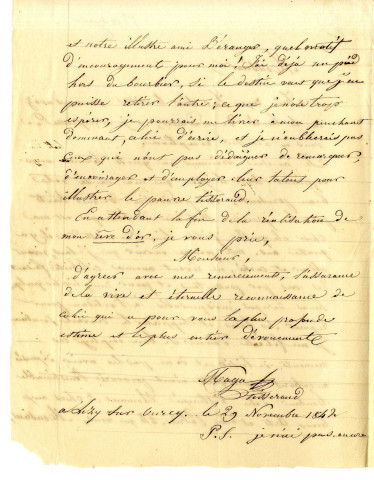 et notre illustre ami Béranger, quel motif
d'encouragement pour moi! J'ai déja un pied
hors du bourbier, si le destin veut que j'en
puisse retirer l'autre, ce que je n'ose trop
espérer, je pourrais me livrer à mon penchant
dominant, celui d'écrire, et je n'oublierais pas
Ceux qui n'ont pas dédaigner de remarquer,
d'encourager et d'employer leur talent pour
illustrer le pauvre tisserand.
En attendant la fin de la réalisation de
mon rêve d'or, je vous prie,
Monsieur,
d'agréer avec mes remerciements, l'assurance
de la vive et éternelle reconnaissance de
celui qui a pour vous la plus profonde
estime et le plus entier dévouement
Magu
tisserand
a Lizy sur Ourcq. le 29 Novembre 1842
P.S. je n'ai pas encore